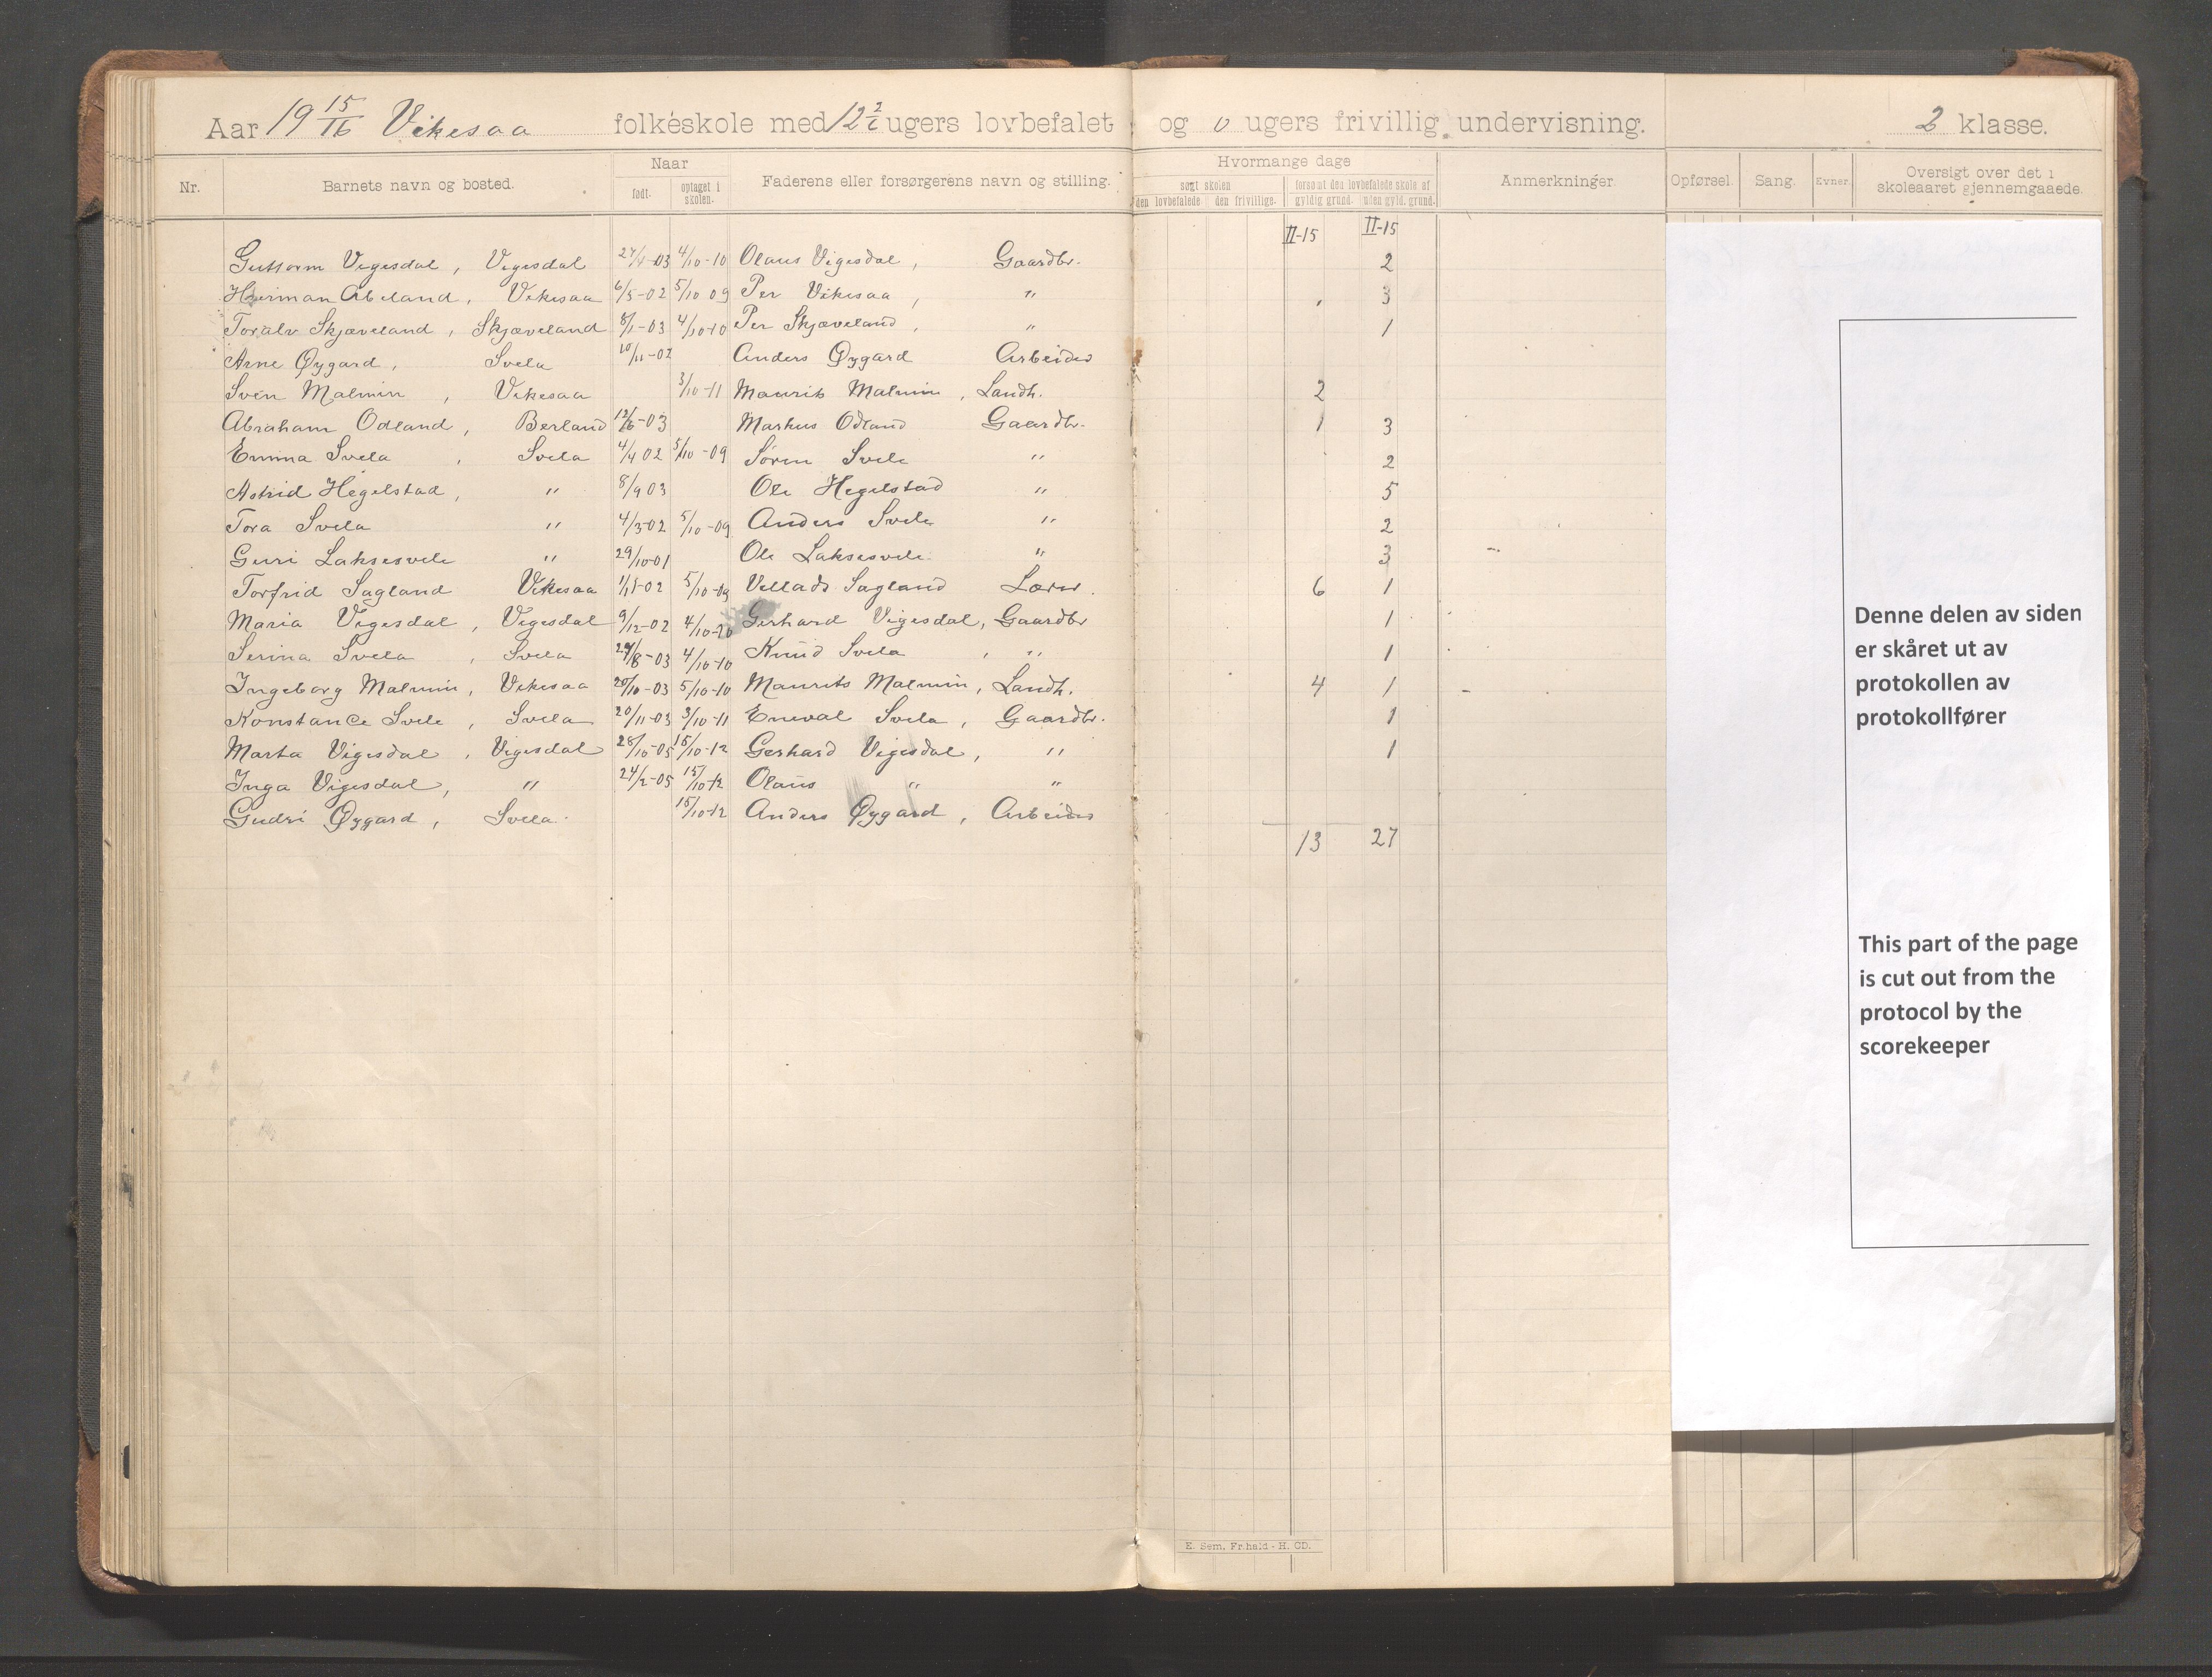 Aar 19 15/16 Vikesaa folkeskole med 12 ugers lovbefalet og 0 ugers frivillig undervisning. 2 klasse.
Nr. Barnets navn og bosted. Naar født. optaget i skolen. Faderens eller forsørgerens navn og stilling. Hvormange dage søgt skolen den lovbefalede den frivillige. forsømt den lovbefalede skole af gyldig grund. uden gyld. grund. Anmerkninger. Opførsel. Sang. Evner. Oversigt over det i skoleaaret gjennemgaaede.
II-15 II-15
Guttorm Vigesdal, Vigesdal 27/4-03 4/10-10 Olaus Vigesdal, Gaardbr. 2
Herman Abeland, Vikesaa 6/5-02 5/10 09 Per Vikesaa, " 3
Toralv Skjæveland, Skjæveland 8/1-03 4/10-10 Per Skjæveland, " 1
Arne Øygard, Svela 10/11-02 Anders Øygard Arbeider
Sven Malmin, Vikesaa 3/10-11 Maurits Malmin, Landh. 2
Abraham Odland, Berland 12/6-03 Markus Odland Gaardbr. 1 3
Emma Svela, Svela 4/4 02 5/10-09 Søren Svele " 2
Astrid Hegelstad, " 8/9 03 Ole Hegelstad " 5
Tora Svela " 4/3-02 5/10-09 Anders Svele " 2
Guri Laksesvele " 29/10-01 Ole Laksesvele " 3
Torfrid Sagland Vikesaa 1/1-02 5/10-09 Vellads Sagland Lærer. 6 1
Maria Vigesdal, Vigesdal 9/12-02 4/10-10 Gerhard Vigesdal, Gaardbr 1
Serina Svela, Svela 29/8-03 4/10-10 Knud Svela, " 1
Ingeborg Malmin, Vikesaa 20/10-03 5/10-10 Maurits Malmin, Landh. 4 1
Konstance Svele, Svela 20/11-03 3/10-11 Eneval Svela, Gaardbr. 1
Marta Vigesdal, Vigesdal 28/10-05 15/10-12 Gerhard Vigesdal, " 1
Inga Vigesdal, " 24/2-05 15/10-12 Olaus " "
Gudri Øygard, Svela 15/10-12 Anders Øygard, Arbeider
13 27
Denne delen av siden
er skåret ut av
protokollen av
protokollfører
This part of the page
is cut out from the
protocol by the
scorekeeper
E. Sem, Fr.hald - H. CD.